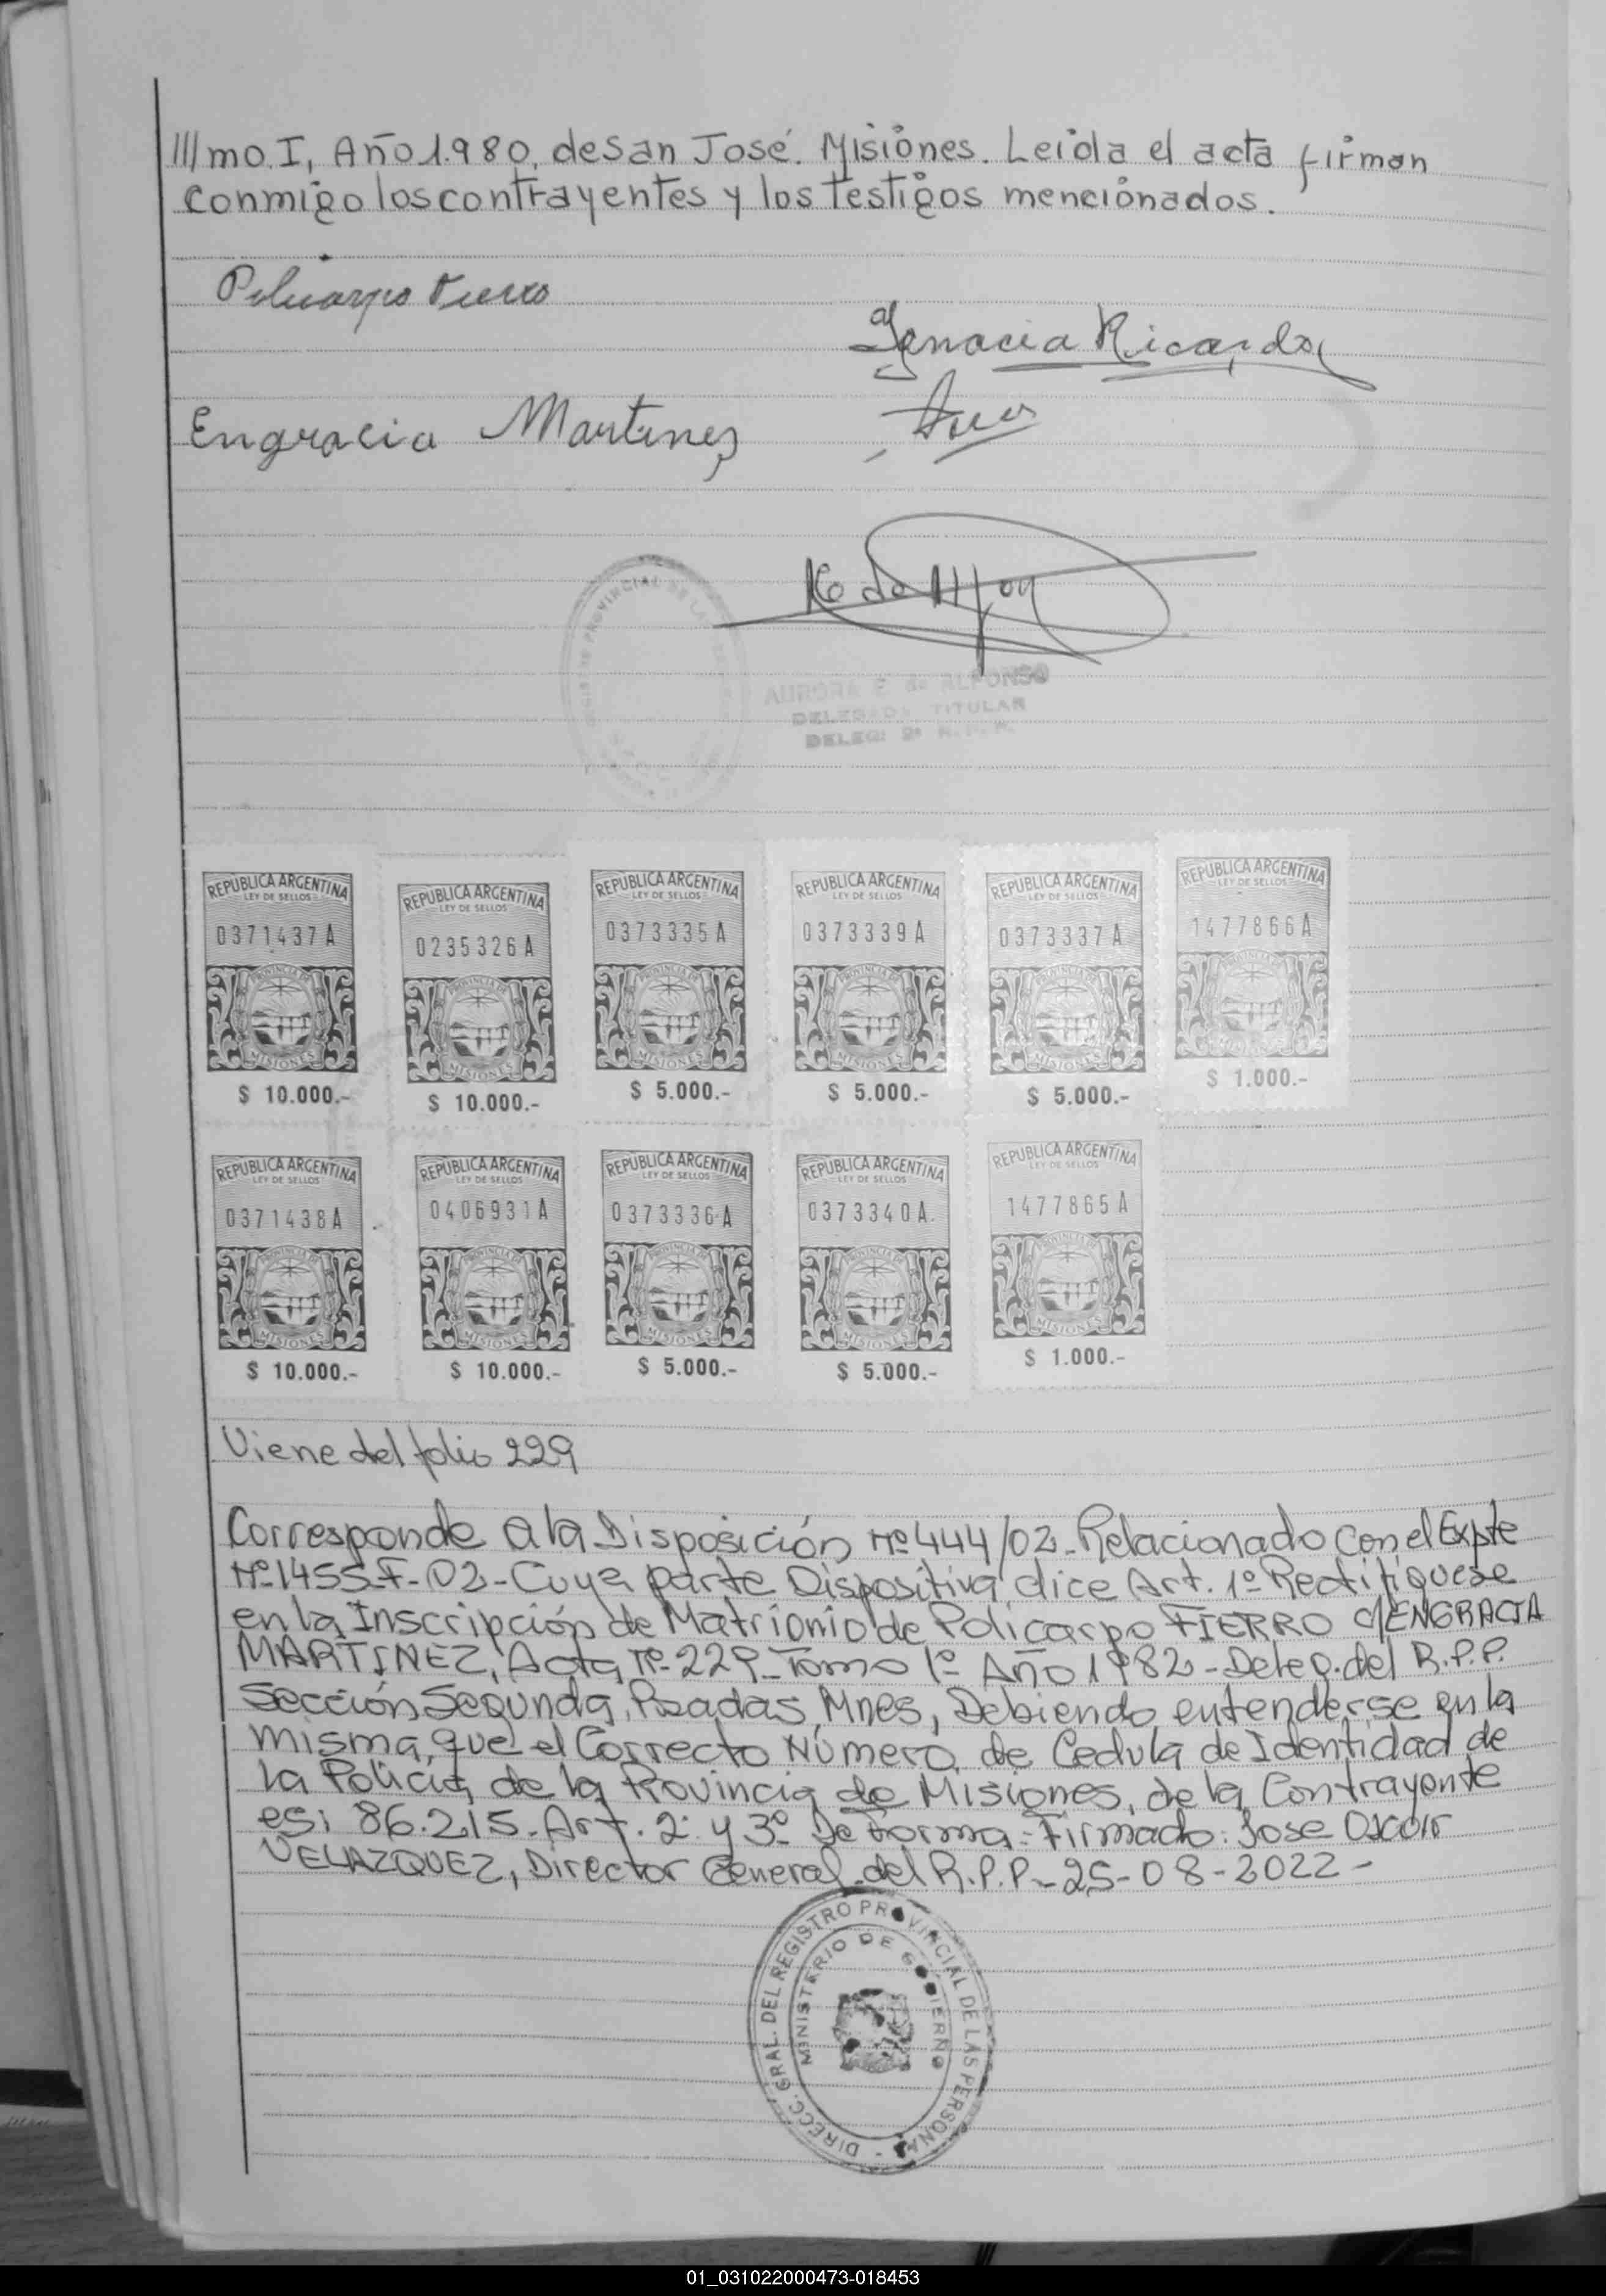 ///mo. I, Año 1.980, de san José. Misiones. Leida el acta firman
conmigo los contrayentes y los testigos mencionados.
Policarpo Fierro
Ignacia Ricarda
Engracia Martinez
AURORA E. de ALFONSO
DELEGADA TITULAR
DELEG: 2ª R.P.P.
REPUBLICA ARGENTINA
LEY DE SELLOS
0371437A
PROVINCIA DE
MISIONES
$ 10.000.-
REPUBLICA ARGENTINA
LEY DE SELLOS
0235326A
PROVINCIA DE
MISIONES
$ 10.000.-
REPUBLICA ARGENTINA
LEY DE SELLOS
0373335A
PROVINCIA DE
MISIONES
$ 5.000.-
REPUBLICA ARGENTINA
LEY DE SELLOS
0373339A
PROVINCIA DE
MISIONES
$ 5.000.-
REPUBLICA ARGENTINA
LEY DE SELLOS
0373337A
PROVINCIA DE
MISIONES
$ 5.000.-
REPUBLICA ARGENTINA
LEY DE SELLOS
1477866A
PROVINCIA DE
MISIONES
$ 1.000.-
REPUBLICA ARGENTINA
LEY DE SELLOS
0371438A
PROVINCIA DE
MISIONES
$ 10.000.-
REPUBLICA ARGENTINA
LEY DE SELLOS
0406931A
PROVINCIA DE
MISIONES
$ 10.000.-
REPUBLICA ARGENTINA
LEY DE SELLOS
0373336A
PROVINCIA DE
MISIONES
$ 5.000.-
REPUBLICA ARGENTINA
LEY DE SELLOS
0373340A
PROVINCIA DE
MISIONES
$ 5.000.-
REPUBLICA ARGENTINA
LEY DE SELLOS
1477865A
PROVINCIA DE
MISIONES
$ 1.000.-
Viene del folio 229
Corresponde a la Disposición Nº 444/02-Relacionado con el Expte
Nº-1455-F-02-Cuya parte Dispositiva dice Art. 1º Rectifiquese
en la Inscripción de Matrionio de Policarpo FIERRO c/ENGRACIA
MARTINEZ, Acta Nº-229-Tomo 1º- Año 1982-Deleg. del R.P.P.
Sección Segunda, Posadas, Mnes, Debiendo entenderse en la
misma, que el Correcto Número de Cedula de Identidad de
la Policia de la Provincia de Misiones, de la Contrayente
es: 86.215.-Art. 2º y 3º De Forma: Firmado: Jose Oscar
VELAZQUEZ, Director General del R.P.P.-25-08-2022-
DIRECC. GRAL. DEL REGISTRO PROVINCIAL DE LAS PERSONAS -
MINISTERIO DE GOBIERNO
01_031022000473-018453